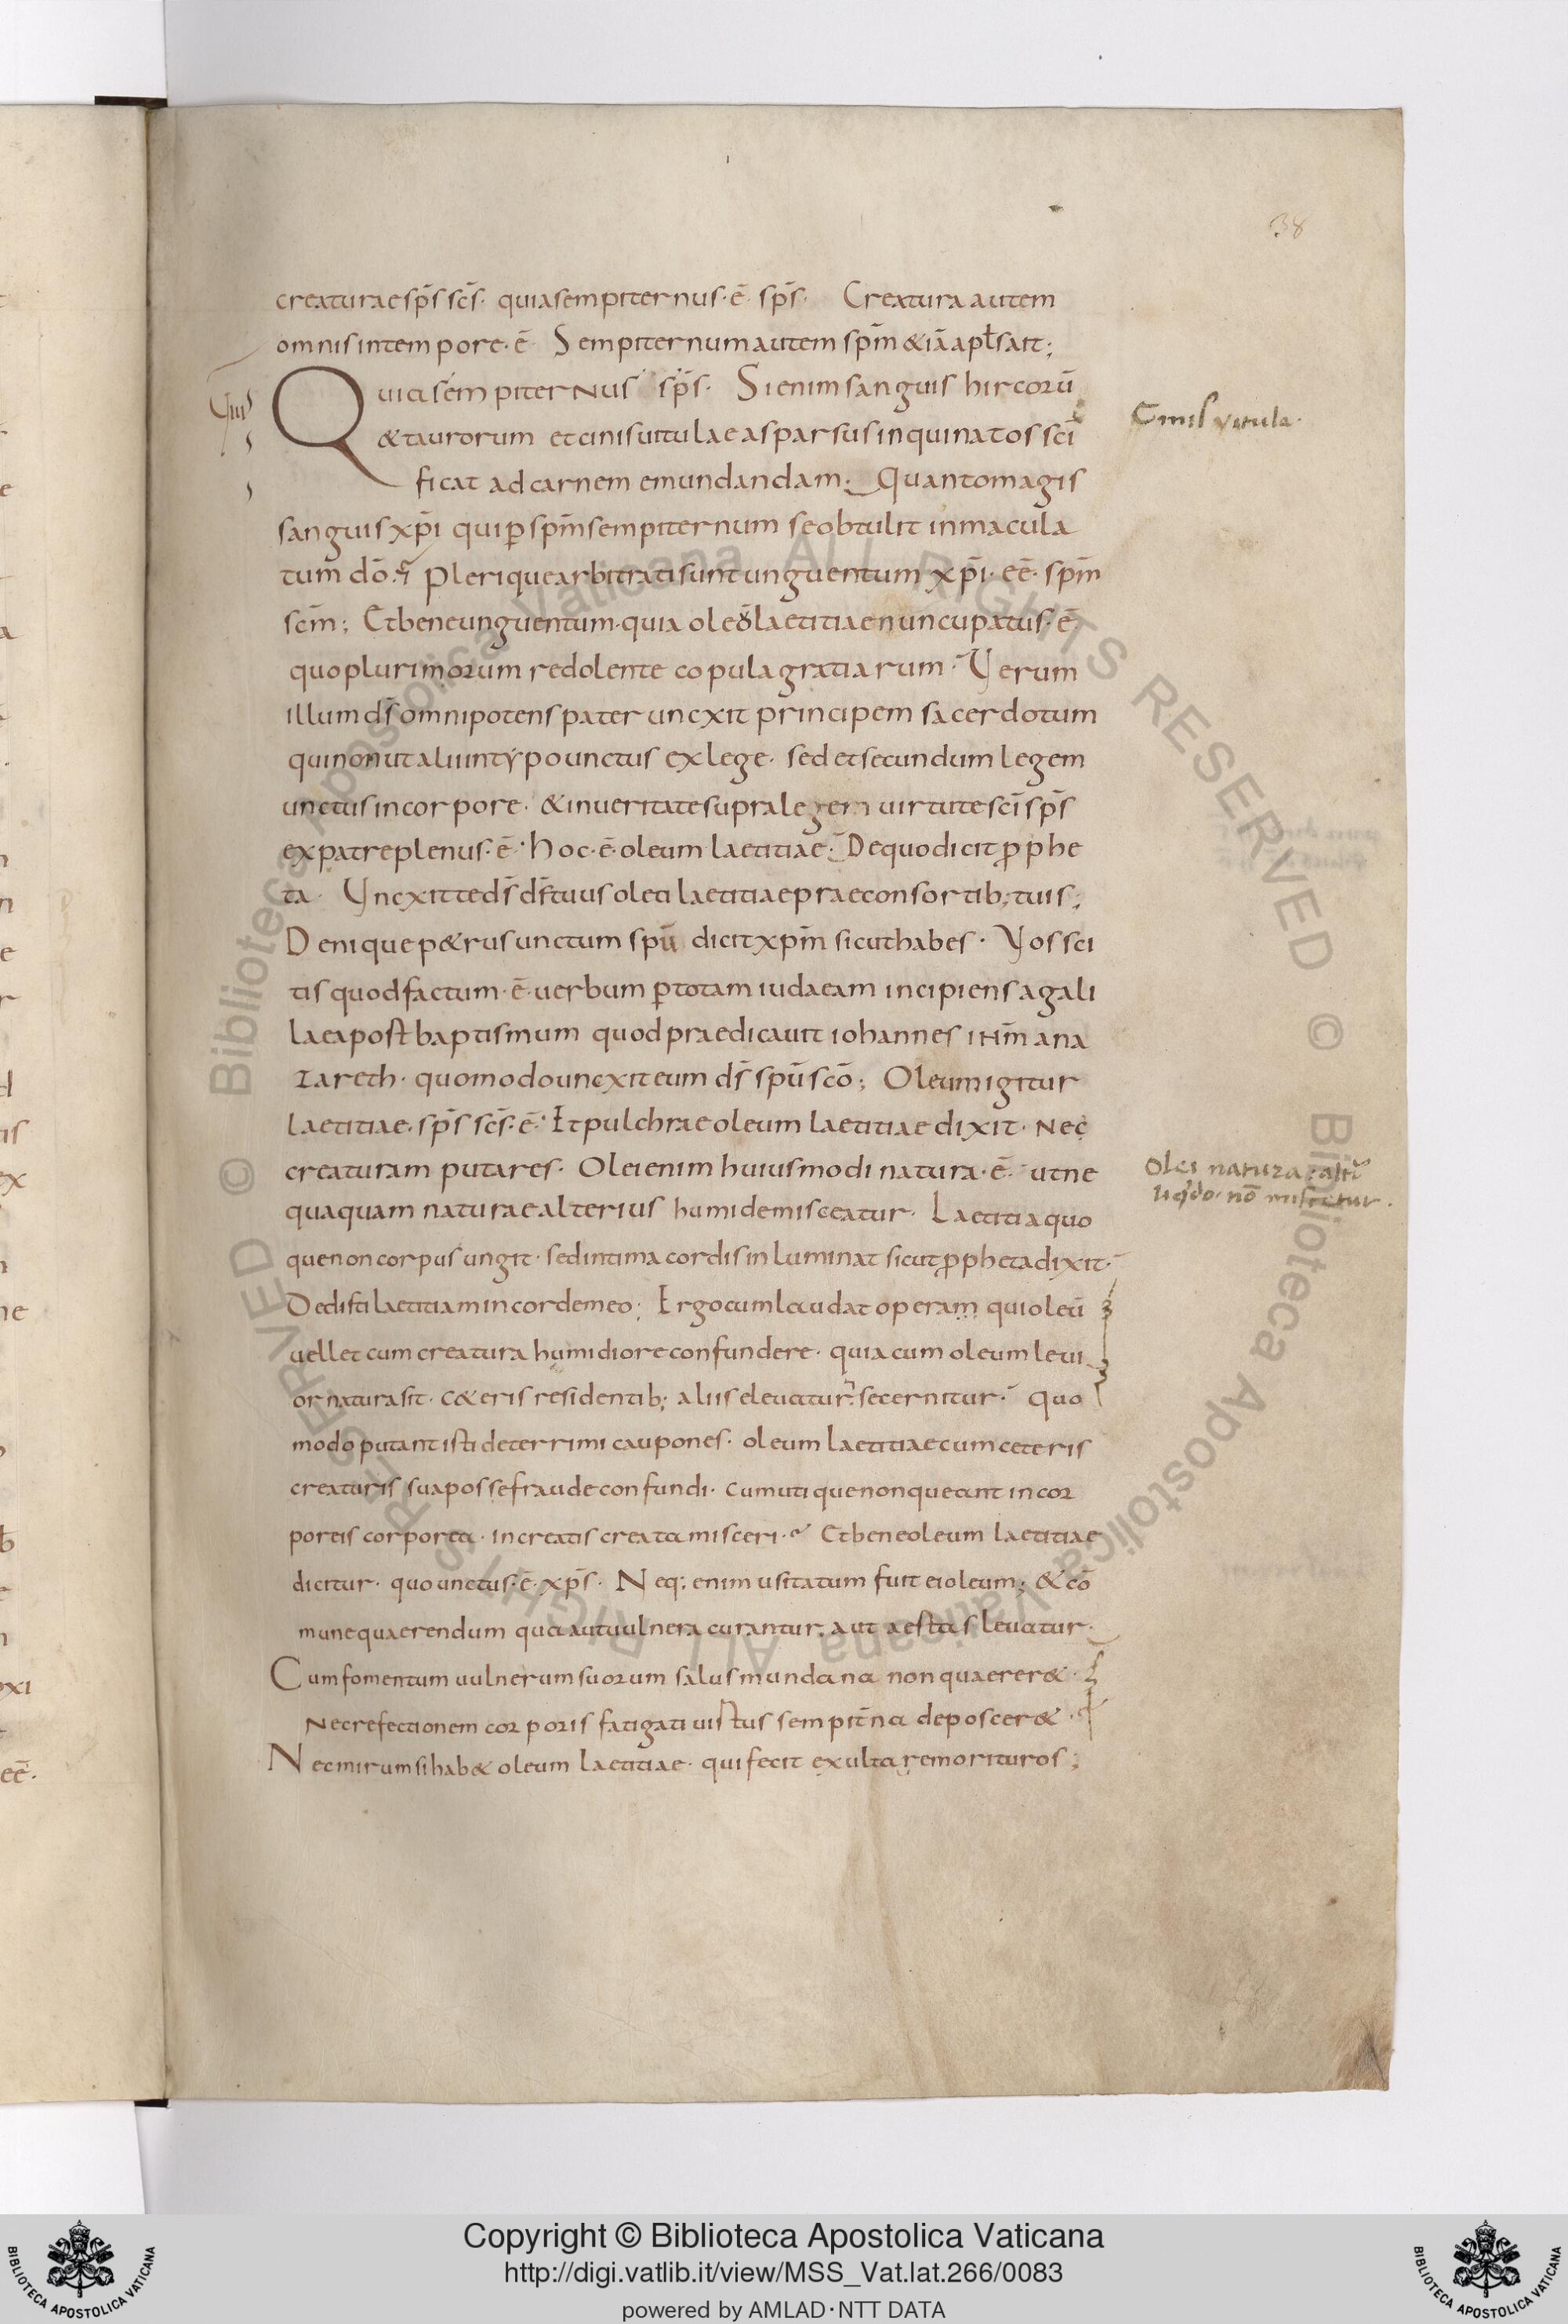 38
creaturae sp̄s sc̄s· quia sempiternus·ē· sp̄s· Creatura autem
omnis in tempore·ē· Sempiternum autem sp̄m & iā apłs ait;
Quia sempiternus sp̄s· Si enim sanguis hircorū
& taurorum et cinis uitulae asparsus inquinatos sc̄i
ficat ad carnem emundandam· Quanto magis
sanguis xp̄i qui ꝑ sp̄m sempiternum se obtulit inmacula
tum dō· Plerique arbitrati sunt unguentum xp̄i· eē· sp̄m
sc̄m; Et bene unguentum· quia oleū laetitiae nuncupatus·ē
quo plurimorum redolente copula gratiarum· Verum
illum ds̄ omnipotens pater uncxit principem sacerdotum
qui non ut alii in typo unctus ex lege· sed et secundum legem
unctus in corpore· & in ueritate supra legem uirtute sc̄i sp̄s
ex patre plenus·ē· Hoc·ē· oleum laetitiae· De quo dicit ꝓphe
ta· Vncxit te ds̄ ds̄ tuus olei laetitiae prae consortib; tuis;
Denique p&rus unctum spū dicit xp̄m sicut habes· Vos sci
tis quod factum·ē· uerbum ꝑ totam iudaeam incipiens a gali
laea post baptismum quod praedicauit iohannes ihm̄ a na
zareth· quomodo uncxit eum ds̄ spū scō; Oleum igitur
laetitiae· sp̄s sc̄s·ē· Et pulchrae oleum laetitiae dixit· nec
creaturam putares· Olei enim huiusmodi natura·ē· ut ne
quaquam naturae alterius humide misceatur· Laetitia quo
que non corpus ungit· sed intima cordis inluminat sicut ꝓpheta dixit·
Dedisti laetitiam in corde meo; Ergo cum laudat operam qui oleū
uellet cum creatura humidiore confundere· quia cum oleum leui
or natura sit· c&eris residentib; aliis eleuatur· secernitur· Quo
modo putant isti deterrimi caupones· oleum laetitiae cum ceteris
creaturis sua posse fraude confundi· cum utique non queant in cor
poreis corporea· increatis creata misceri· Et bene oleum laetitiae
dicitur· quo unctus·ē· xp̄s· Neq; enim usitatum fuit ei oleum; & cō
mune quaerendum qua aut uulnera curantur· aut aestus leuatur·
Cum fomentum uulnerum suorum salus mundana non quaerer&·
Nec refectionem corporis fatigati uirtus sempit̄na deposcer&·
Nec mirum si hab& oleum laetitiae· qui fecit exultare morituros;
Cinis vitula·
Olei natura: alt̄i
liq̄do· nō miscetur·
Copyright © Biblioteca Apostolica Vaticana
http://digi.vatlib.it/view/MSS_Vat.lat.266/0083
powered by AMLAD·NTT DATA
BIBLIOTECA APOSTOLICA VATICANA
BIBLIOTECA APOSTOLICA VATICANA
© Biblioteca Apostolica Vaticana ALL RIGHTS RESERVED © Biblioteca Apostolica Vaticana ALL RIGHTS RESERVED